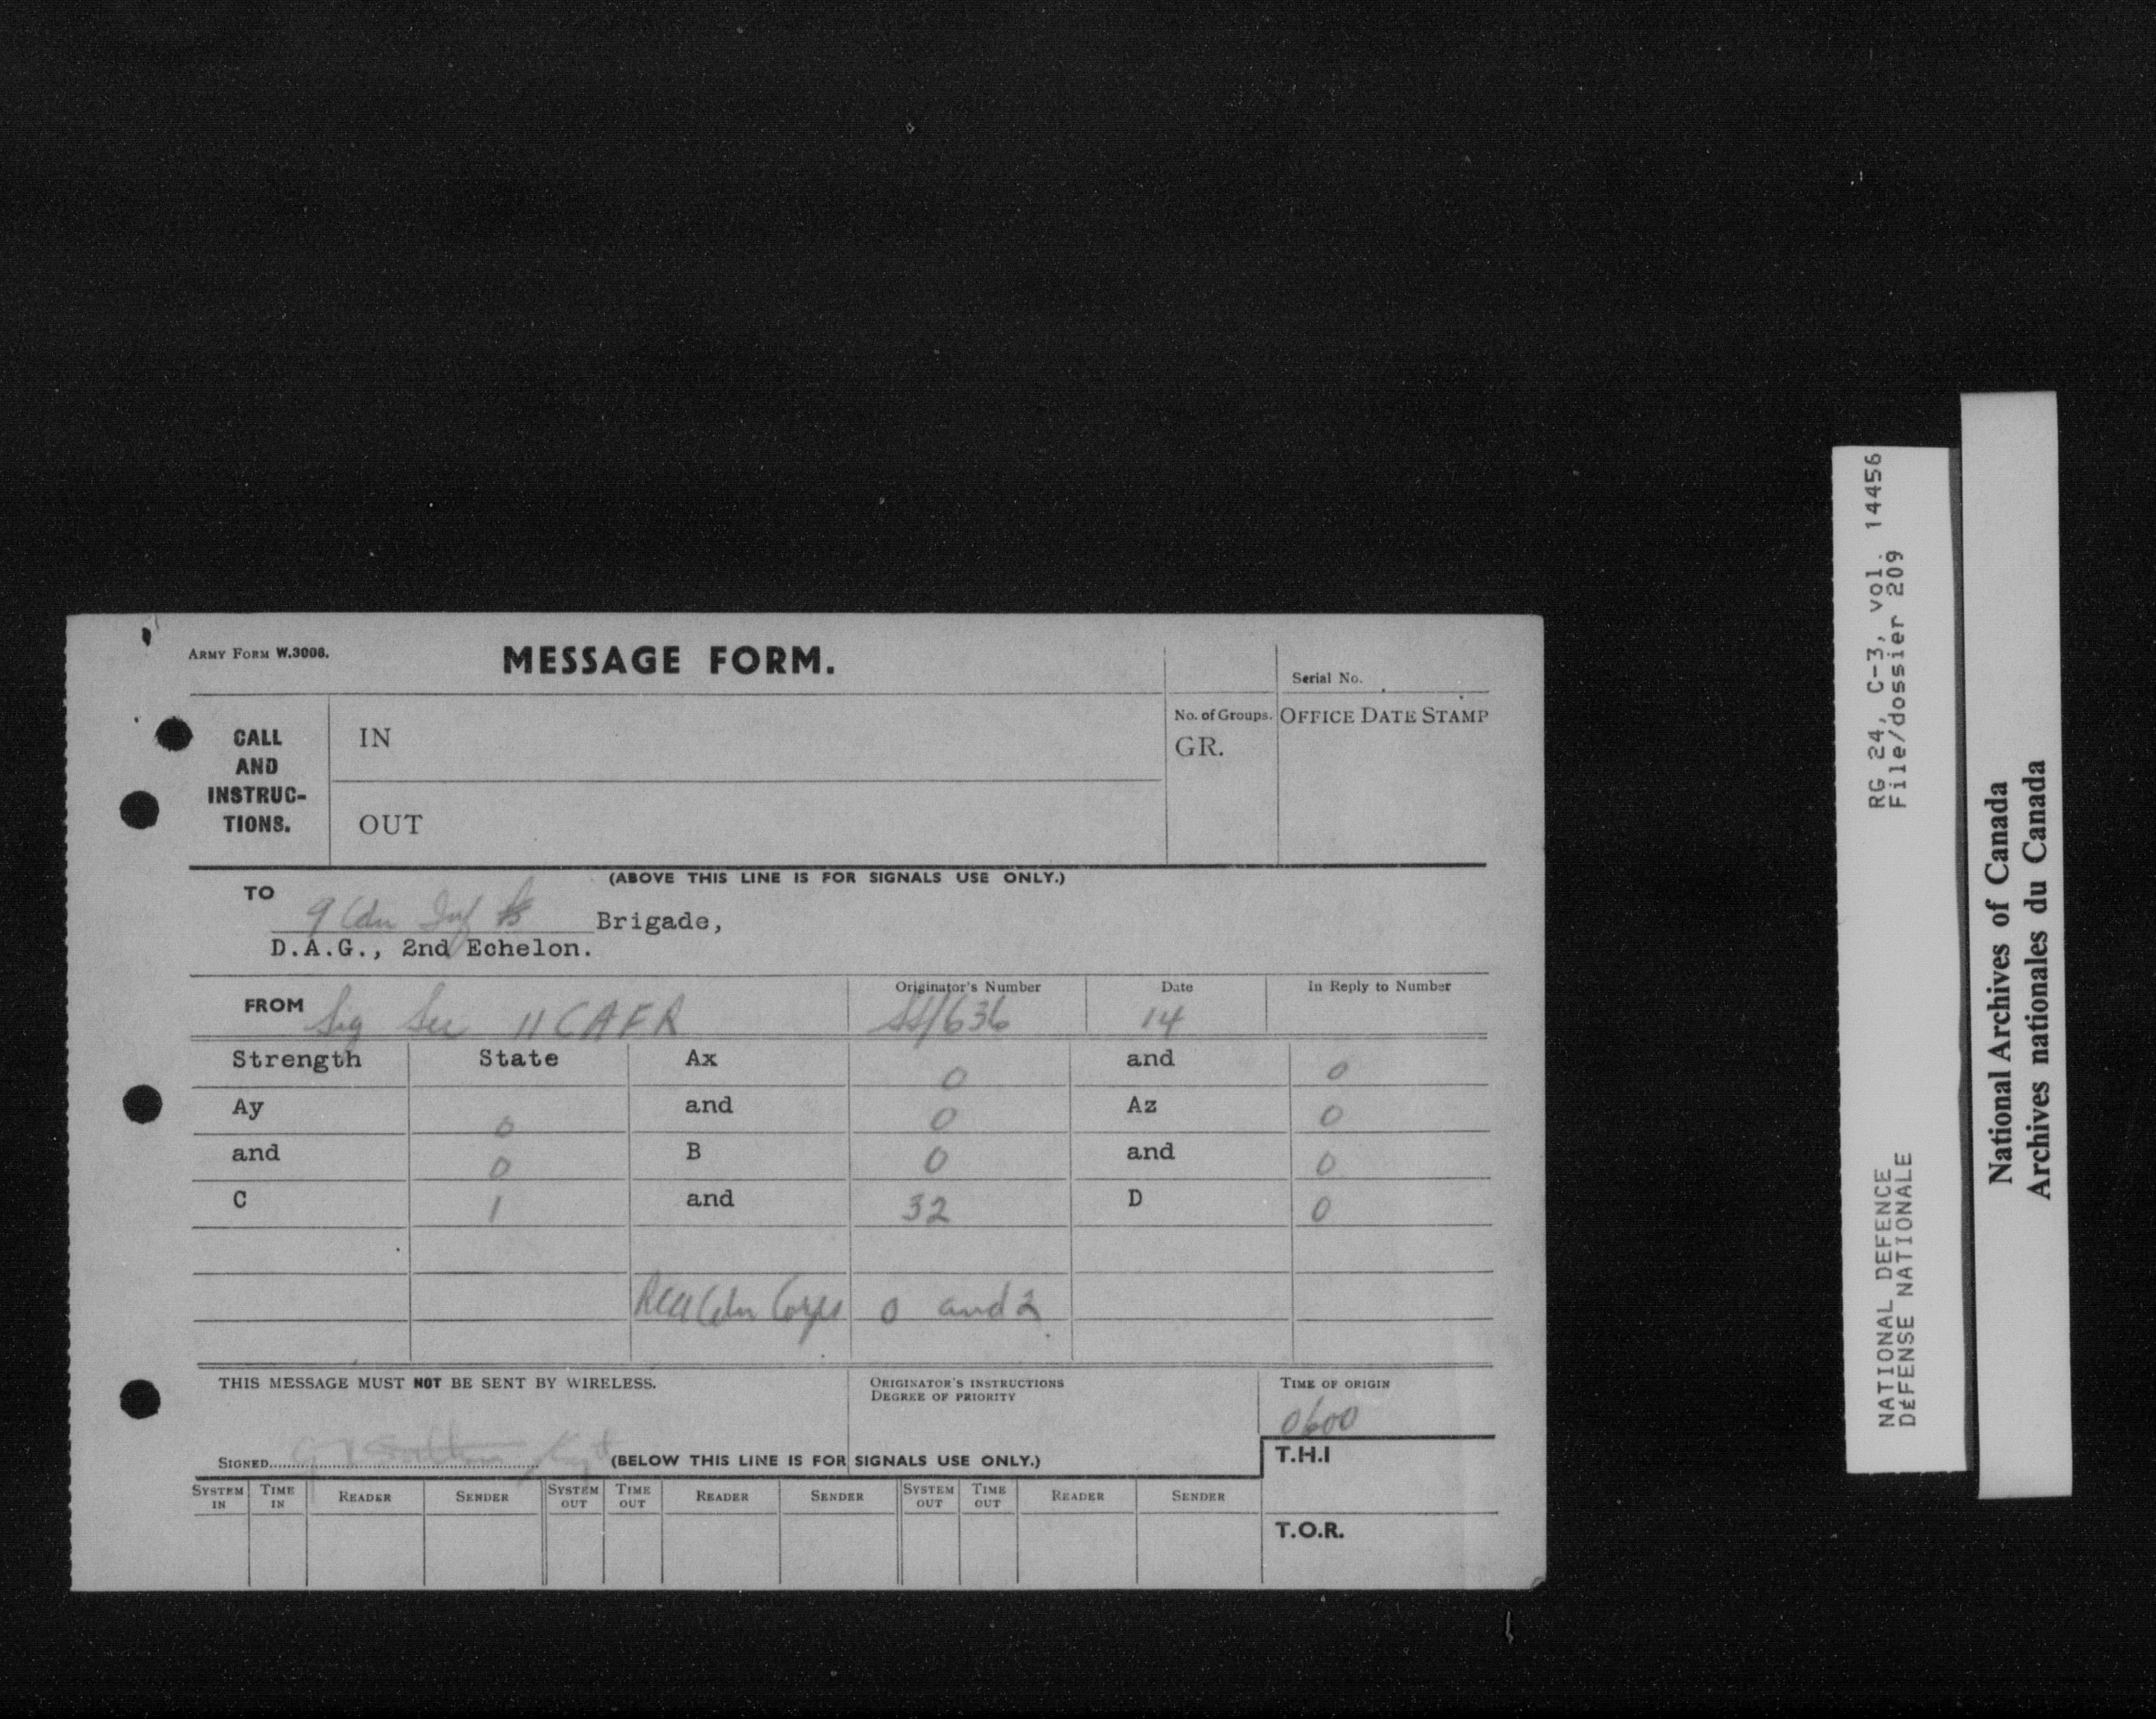 ARMY FORM W.3008.
MESSAGE FORM.
Serial No.
CALL
AND
INSTRUC-
TIONS.
IN
OUT
No. of Groups.
GR.
OFFICE DATE STAMP
(ABOVE THIS LINE IS FOR SIGNALS USE ONLY.)
TO
9 Cdn Inf Brigade,
D.A.G., 2nd Echelon.
FROM Sig Sec 11 CAFR
Originator's Number
SS/636
Date
14
In Reply to Number
Strength State Ax 0 and 0
Ay 0 and 0 Az 0
and 0 B 0 and 0
C 1 and 32 D 0
Cdn Corps 0 and 2
THIS MESSAGE MUST NOT BE SENT BY WIRELESS.
ORIGINATOR'S INSTRUCTIONS
DEGREE OF PRIORITY
TIME OF ORIGIN
0600
SIGNED
(BELOW THIS LINE IS FOR SIGNALS USE ONLY.)
T.H.I
SYSTEM IN TIME IN READER SENDER SYSTEM OUT TIME OUT READER SENDER SYSTEM OUT TIME OUT READER SENDER
T.O.R.
RG 24, C-3, vol. 14456
File/dossier 209
NATIONAL DEFENCE
DÉFENSE NATIONALE
National Archives of Canada
Archives nationales du Canada